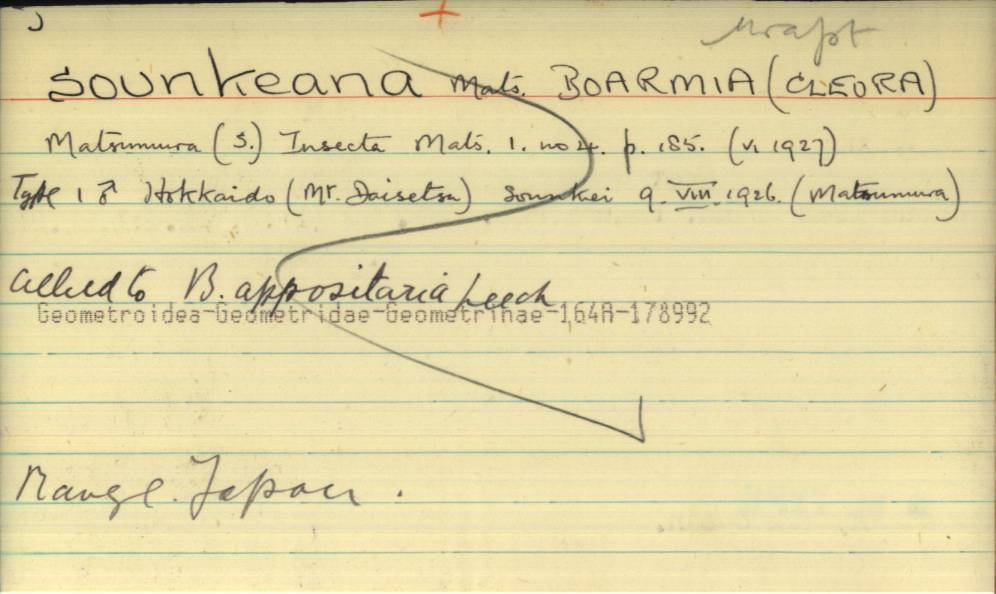 sounkeana Mats. BOARMIA (CLEORA)
Matsumura (S.) Insecta Mats. 1. no 4. p. 185. (VI 1927)
Type 1 ♂ Hokkaido (Mt. Daisetsu) Sounkei 9. VIII. 1926. (Matsumura)
allied to B. appositaria Leech
Geometroidea-Geometridae-Geometrinae-164A-178992
Range. Japan.